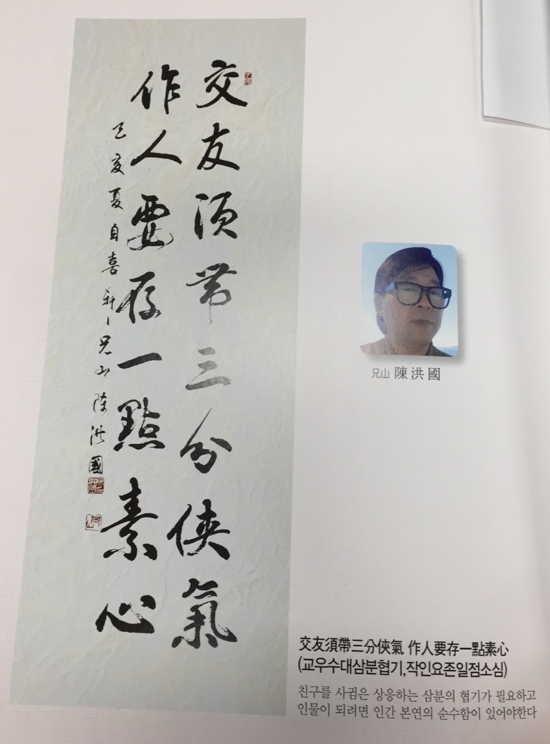 交友須帶三分侠氣
作人要存一點素心
己亥夏自喜軒 兄山 陳洪國
兄山 陳洪國
交友須帶三分侠氣 作人要存一點素心
(교우수대삼분협기,작인요존일점소심)
친구를 사귐은 상응하는 삼분의 협기가 필요하고
인물이 되려면 인간 본연의 순수함이 있어야한다